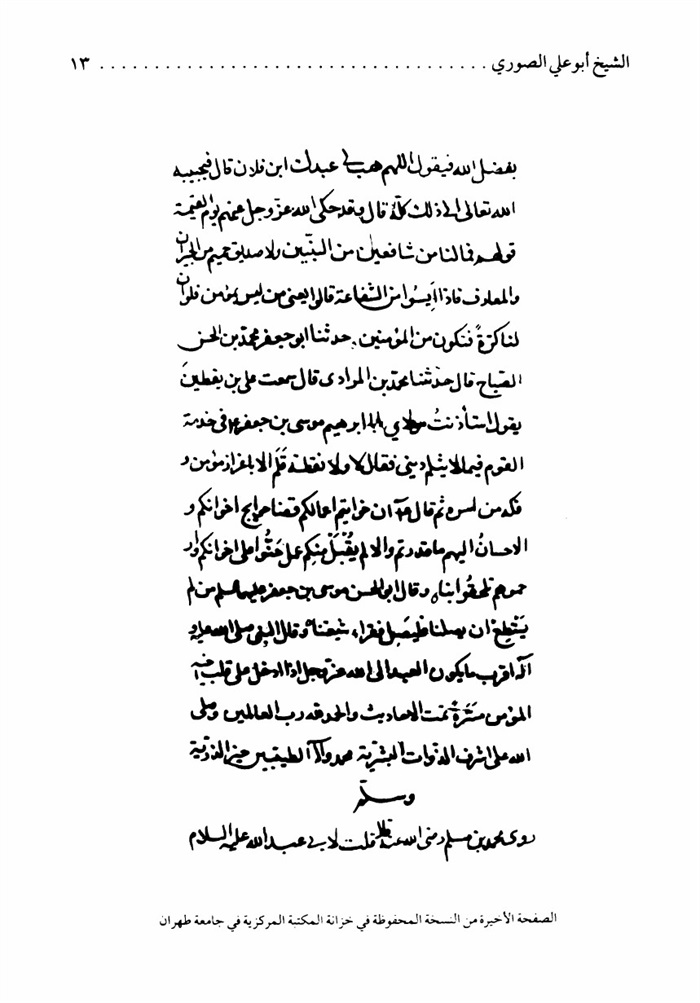 الشيخ أبو علي الصوري . . . . . . . . . . . . . . . . . . . . . . . . . . . . . . . . . . . . ١٣
بفضل الله فيقول اللهم هب لي عبدك ابن فلان قال فيجيبه
الله تعالى الى ذلك كله قال وقد حكى الله عز وجل عنهم يوم القيمة
قولهم فمالنا من شافعين من النبيين ولا صديق حميم من الجيران
والمعارف فاذا أيسوا من الشفاعة قالوا يعنى من ليس بمؤمن فلو ان
لنا كرةً فنكون من المؤمنين . حدثنا ابو جعفر محمد بن الحسن
الصباح قال حدثنا محمد بن المرادى قال سمعت على بن يقطين
يقول استأذنتُ مولاي ابا ابرهيم موسى بن جعفر ع فى خدمة
القوم فيما لا يثلم دينى فقال لا ولا نقطة قلم الا باعزاز مؤمن و
فكه من اسره ثم قال ع ان خواتيم اعمالكم قضا حوايج اخوانكم و
الاحسانُ اليهم ما قدرتم والا لم يُقْبَل منكم عمل حَنُّوا على اخوانكم وار
حموهم تلحقوا بنا و قال ابو الحسن موسى بن جعفر عليهما السلم من لم
يَسْتطع ان يصلنا فليصل فقراء شيعتنا و قال النبى صلى الله عليه و
آله اقرب ما يكون العبد الى الله عز وجل اذا ادخل على قلب اخيه
المؤمن مسَرّة تمت الاحاديث والحمد لله رب العالمين وصلى
الله على اشرف الذوات البشرية محمد وآله الطيبين خير الذرية
وسلم
روى محمد بن مسلم رضى الله عنه قال قلت لابى عبد الله عليه السلام
الصفحة الأخيرة من النسخة المحفوظة في خزانة المكتبة المركزية في جامعة طهران